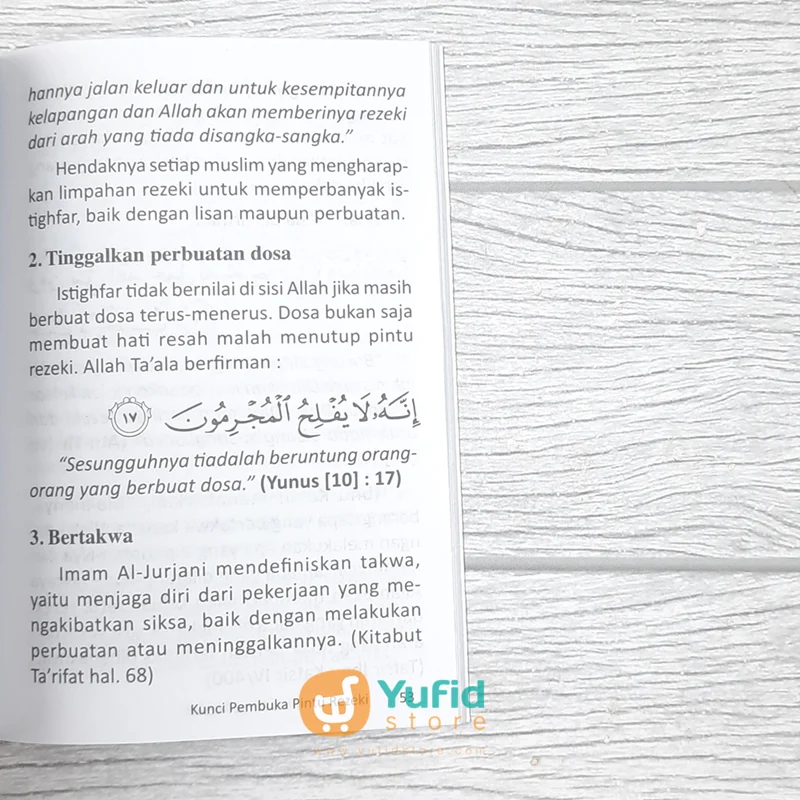 hannya jalan keluar dan untuk kesempitannya
kelapangan dan Allah akan memberinya rezeki
dari arah yang tiada disangka-sangka.”
Hendaknya setiap muslim yang mengharap-
kan limpahan rezeki untuk memperbanyak is-
tighfar, baik dengan lisan maupun perbuatan.
2. Tinggalkan perbuatan dosa
Istighfar tidak bernilai di sisi Allah jika masih
berbuat dosa terus-menerus. Dosa bukan saja
membuat hati resah malah menutup pintu
rezeki. Allah Ta’ala berfirman :
إِنَّهُۥ لَا يُفْلِحُ ٱلْمُجْرِمُونَ ١٧
“Sesungguhnya tiadalah beruntung orang-
orang yang berbuat dosa.” (Yunus [10] : 17)
3. Bertakwa
Imam Al-Jurjani mendefiniskan takwa,
yaitu menjaga diri dari pekerjaan yang me-
ngakibatkan siksa, baik dengan melakukan
perbuatan atau meninggalkannya. (Kitabut
Ta’rifat hal. 68)
Kunci Pembuka Pintu Rezeki 53
Yufid
store
www.yufidstore.com